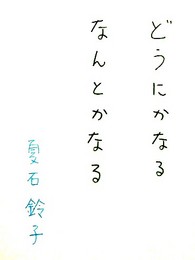 どうにかなる
なんとかなる
戞石鈴子